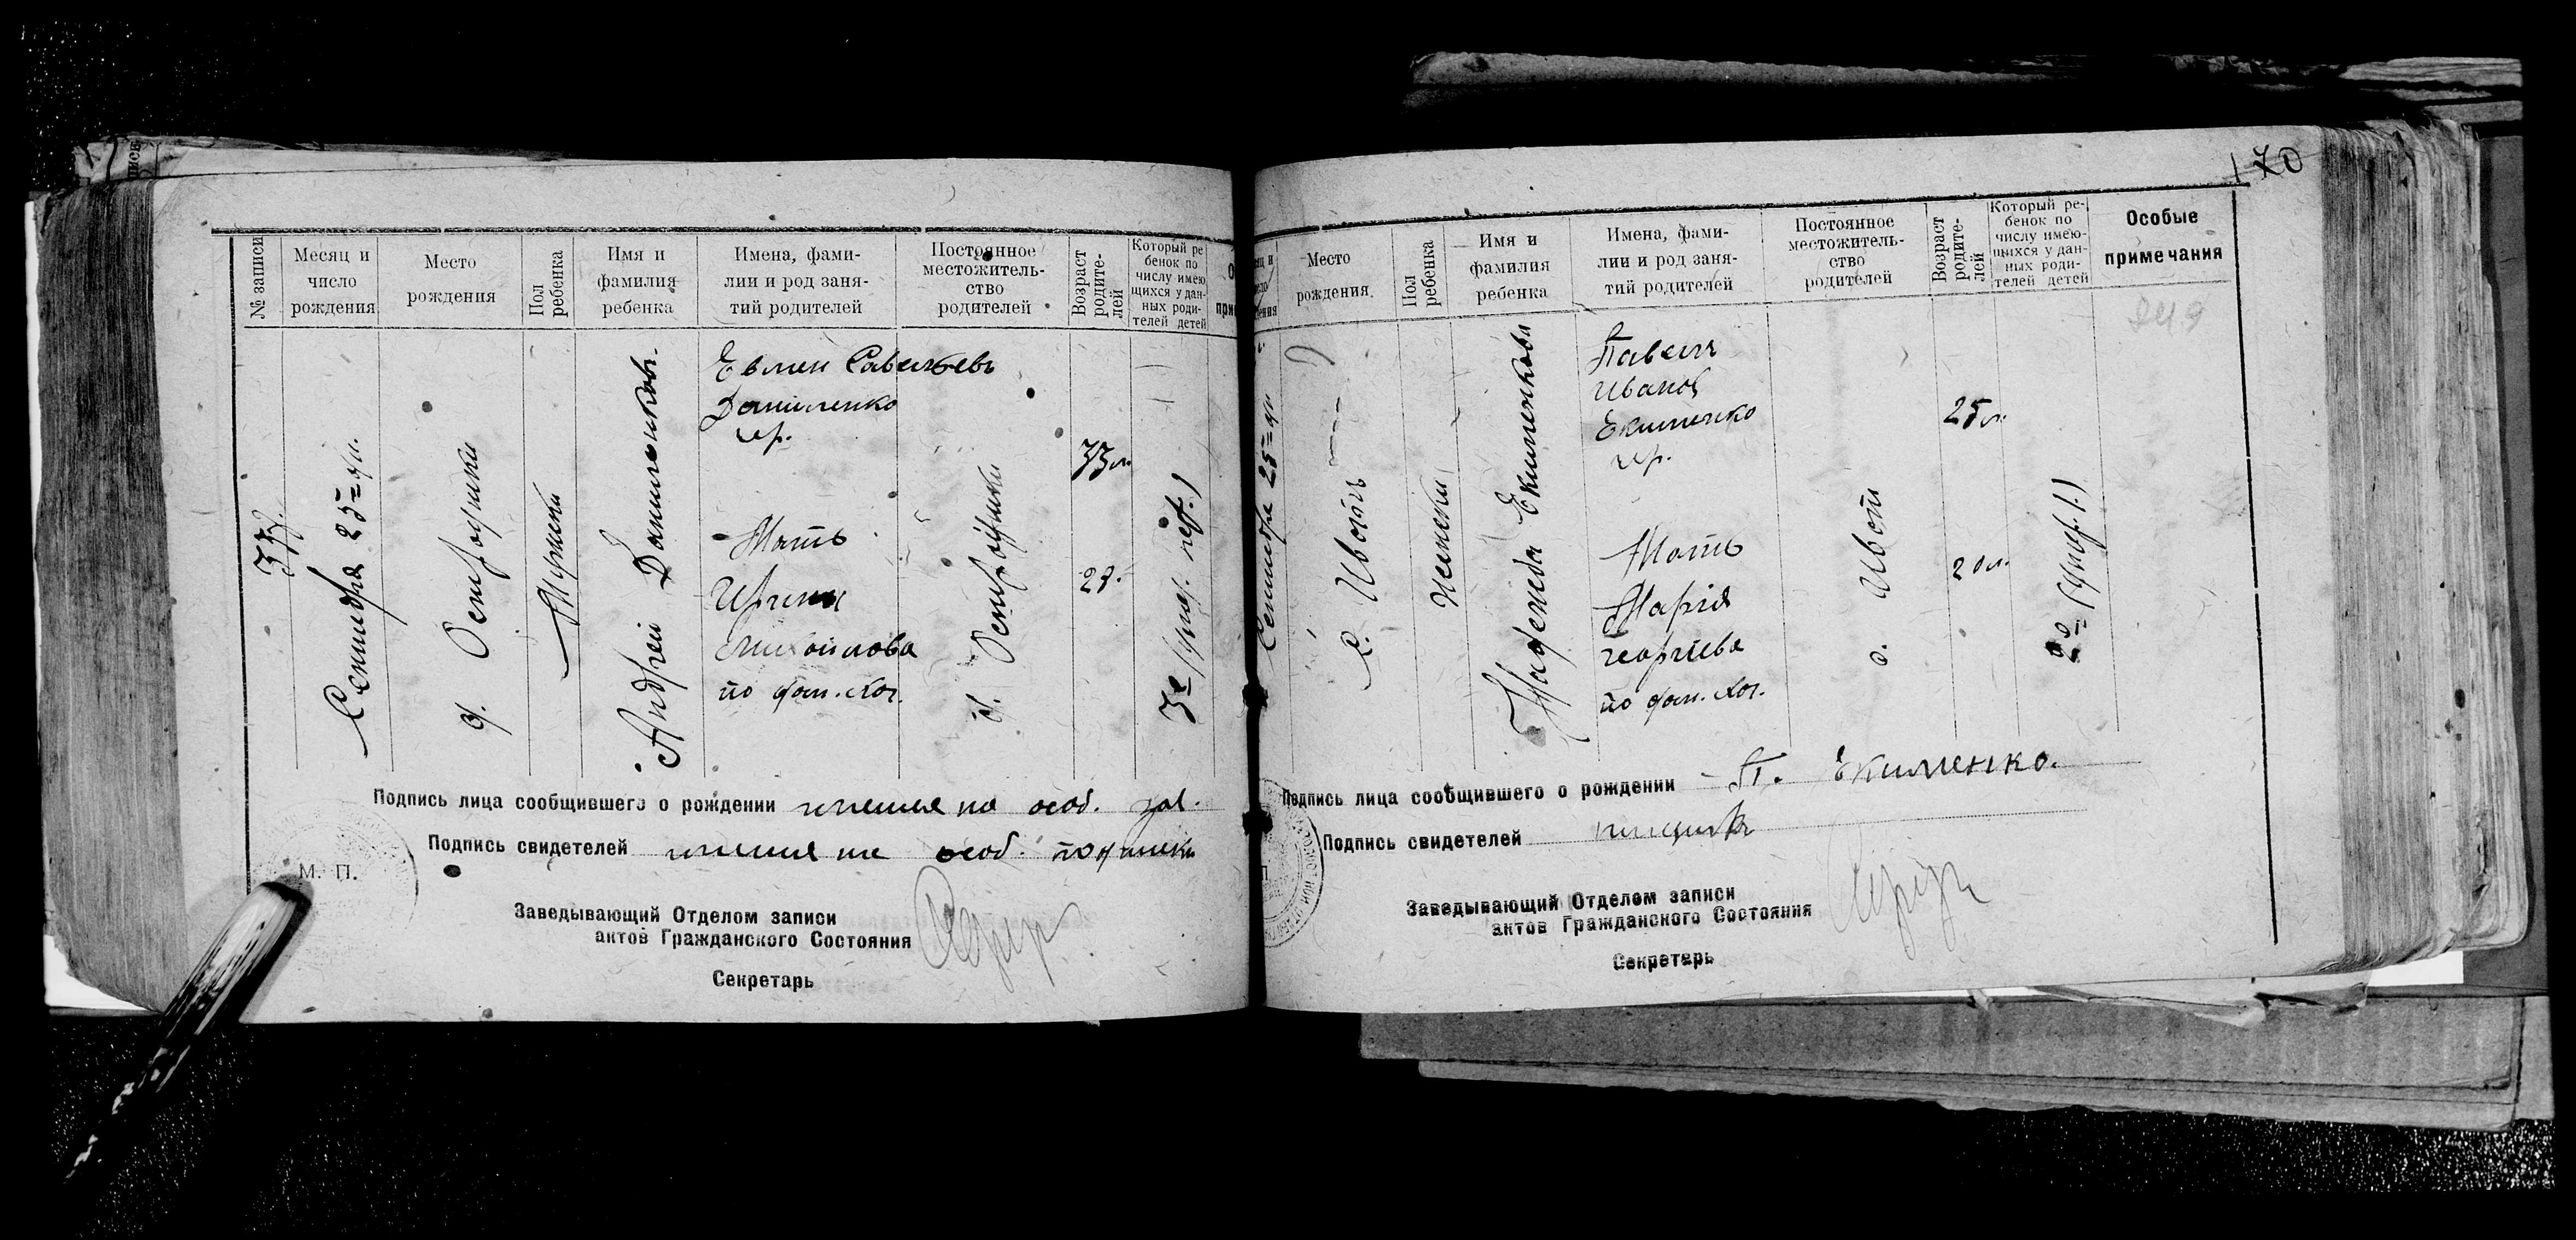 170
№ записи
Месяц и
число
рождения
Место
рождения
Пол
ребенка
Имя и
фамилия
ребенка
Имена, фами-
лии и род заня-
тий родителей
Постоянное
местожитель-
ство
родителей
Возраст
родите-
лей
Который ре
бенок по
числу имею
щихся у дан-
ных роди-
телей детей
377.
Сентября 25 =
д.
Мужски
Андрей Даниленковъ.
Савельевъ
Даниленко
Мать
Михайлова
по фам.
д.
33 л.
27.
3е
Подпись лица сообщившего о рождении имеется на особ.
Подпись свидетелей имеется на особ.
М. П.
Заведывающий Отделом записи
актов Гражданского Состояния
Секретарь
Место
рождения
Пол
ребенка
Имя и
фамилия
ребенка
Имена, фами-
лии и род заня-
тий родителей
Постоянное
местожитель-
ство
родителей
Возраст
родите-
лей
Который ре-
бенок по
числу имею-
щихся у дан-
ных роди-
телей детей
Особые
примечания
Сентября 25 =
с. Ивоть
Женски
Надежда Екименкова
Павелъ
Иванов
Екименко
Мать
Марія
Георгіева
по фам.
с. Ивот
25 л.
20 л.
2е
Подпись лица сообщившего о рождении П. Екименко.
Подпись свидетелей
Заведывающий Отделом записи
актов Гражданского Состояния
Секретарь